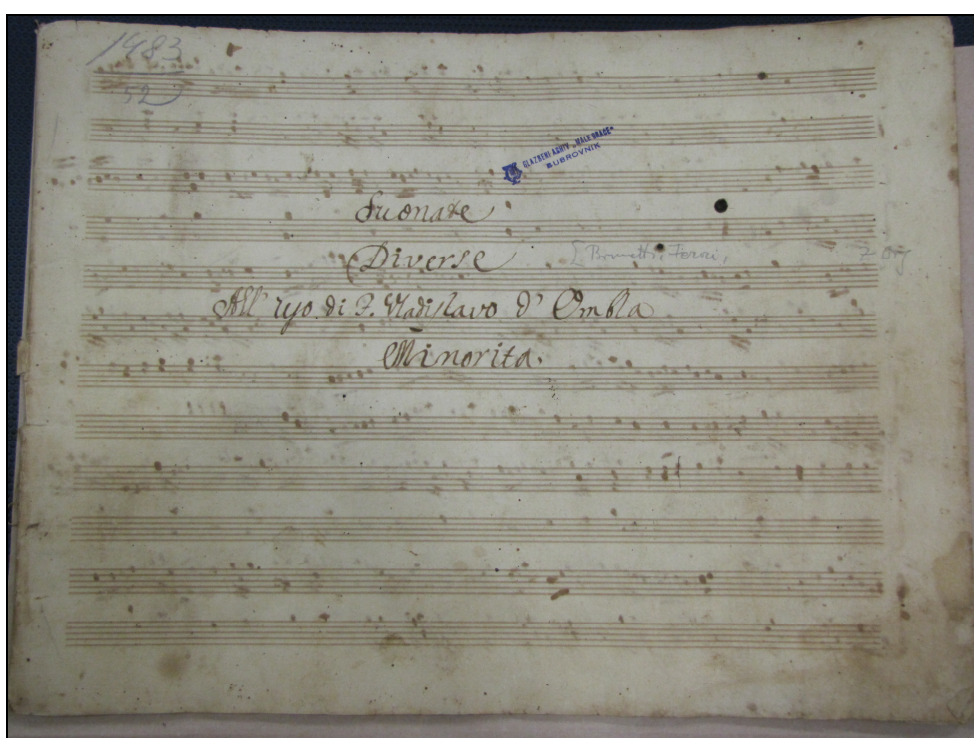 1483
52
GLAZBENI ARHIV „MALE BRAĆE"
DUBROVNIK
Suonate
Diverse
[Brunetti, Ferrari,
All' uso di P. Vladislavo d' Ombla
Minorita.